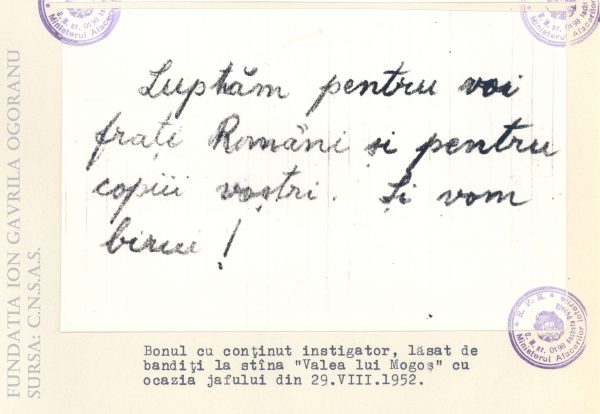 Luptăm pentru voi
frați Români și pentru
copiii voștri. Și vom
birui!
Bonul cu conţinut instigator, lăsat de
bandiţi la stîna "Valea lui Mogoş" cu
ocazia jafului din 29.VIII.1952.
FUNDATIA ION GAVRILA OGORANU
SURSA: C.N.S.A.S.
R.P.R.
Ministerul Afacerilor Interne
U.M. nr. 0198
Ministerul Afacerilor
U.M. nr. 0198
Ministerul Afacerilor